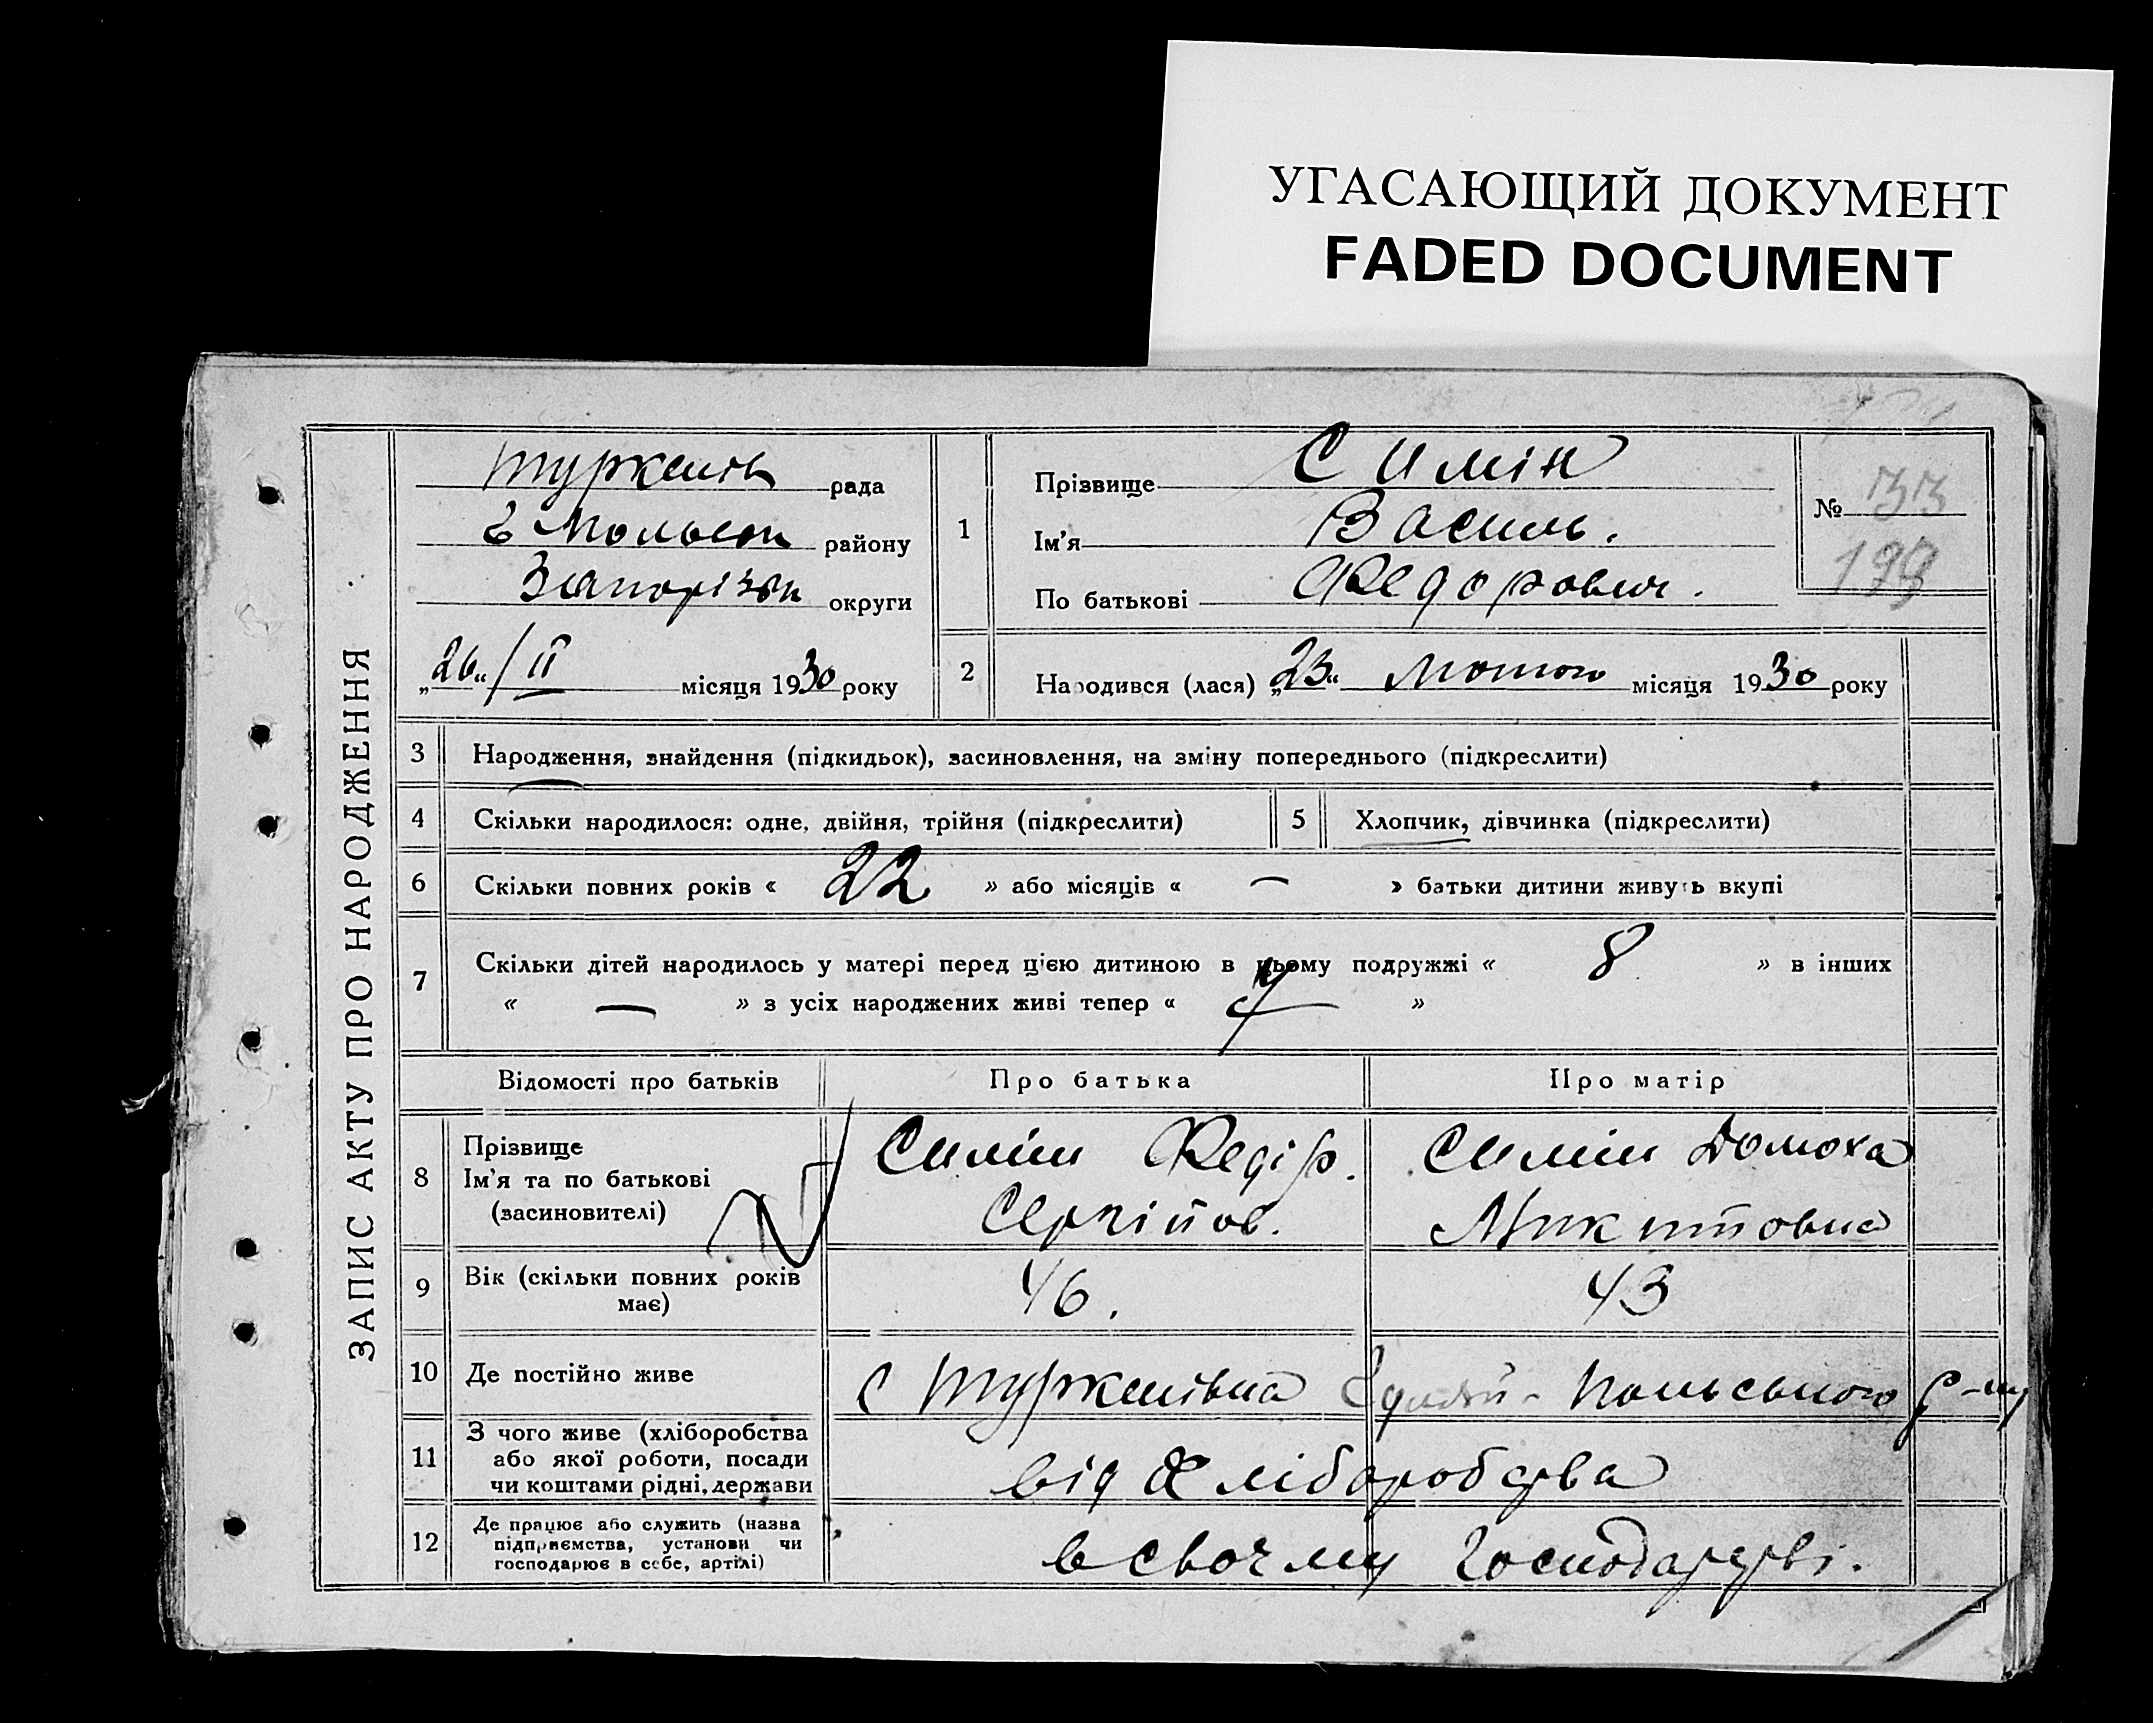 УГАСАЮЩИЙ ДОКУМЕНТ
FADED DOCUMENT
ЗАПИС АКТУ ПРО НАРОДЖЕННЯ
Туркенів рада
Г Польськ району
Запорізьк округи
„26“/II місяця 1930 року
1 Прізвище Симін
Ім'я Василь.
По батькові Федорович.
№ 33
199
2 Народився (лася) „23“ Лютого місяця 1930 року
3 Народження, знайдення (підкидьок), засиновлення, на зміну попереднього (підкреслити)
4 Скільки народилося: одне, двійня, трійня (підкреслити)
5 Хлопчик, дівчинка (підкреслити)
6 Скільки повних років « 22 » або місяців « — » батьки дитини живуть вкупі
7 Скільки дітей народилось у матері перед цією дитиною в цьому подружжі « 8 » в інших
« — » з усіх народжених живі тепер « »
Відомості про батьків Про батька Про матір
8 Прізвище
Ім'я та по батькові
(засиновителі)
Симін Федір.
Сергійов.
Симін Домоха
Микитовна
9 Вік (скільки повних років
має)
46. 43
10 Де постійно живе с Туркенівка Гуляй-Польського р-ну
11 З чого живе (хліборобства
або якої роботи, посади
чи коштами рідні, держави
від хліборобства
12 Де працює або служить (назва
підприємства, установи чи
господарює в себе, артілі)
в своєму господарстві.